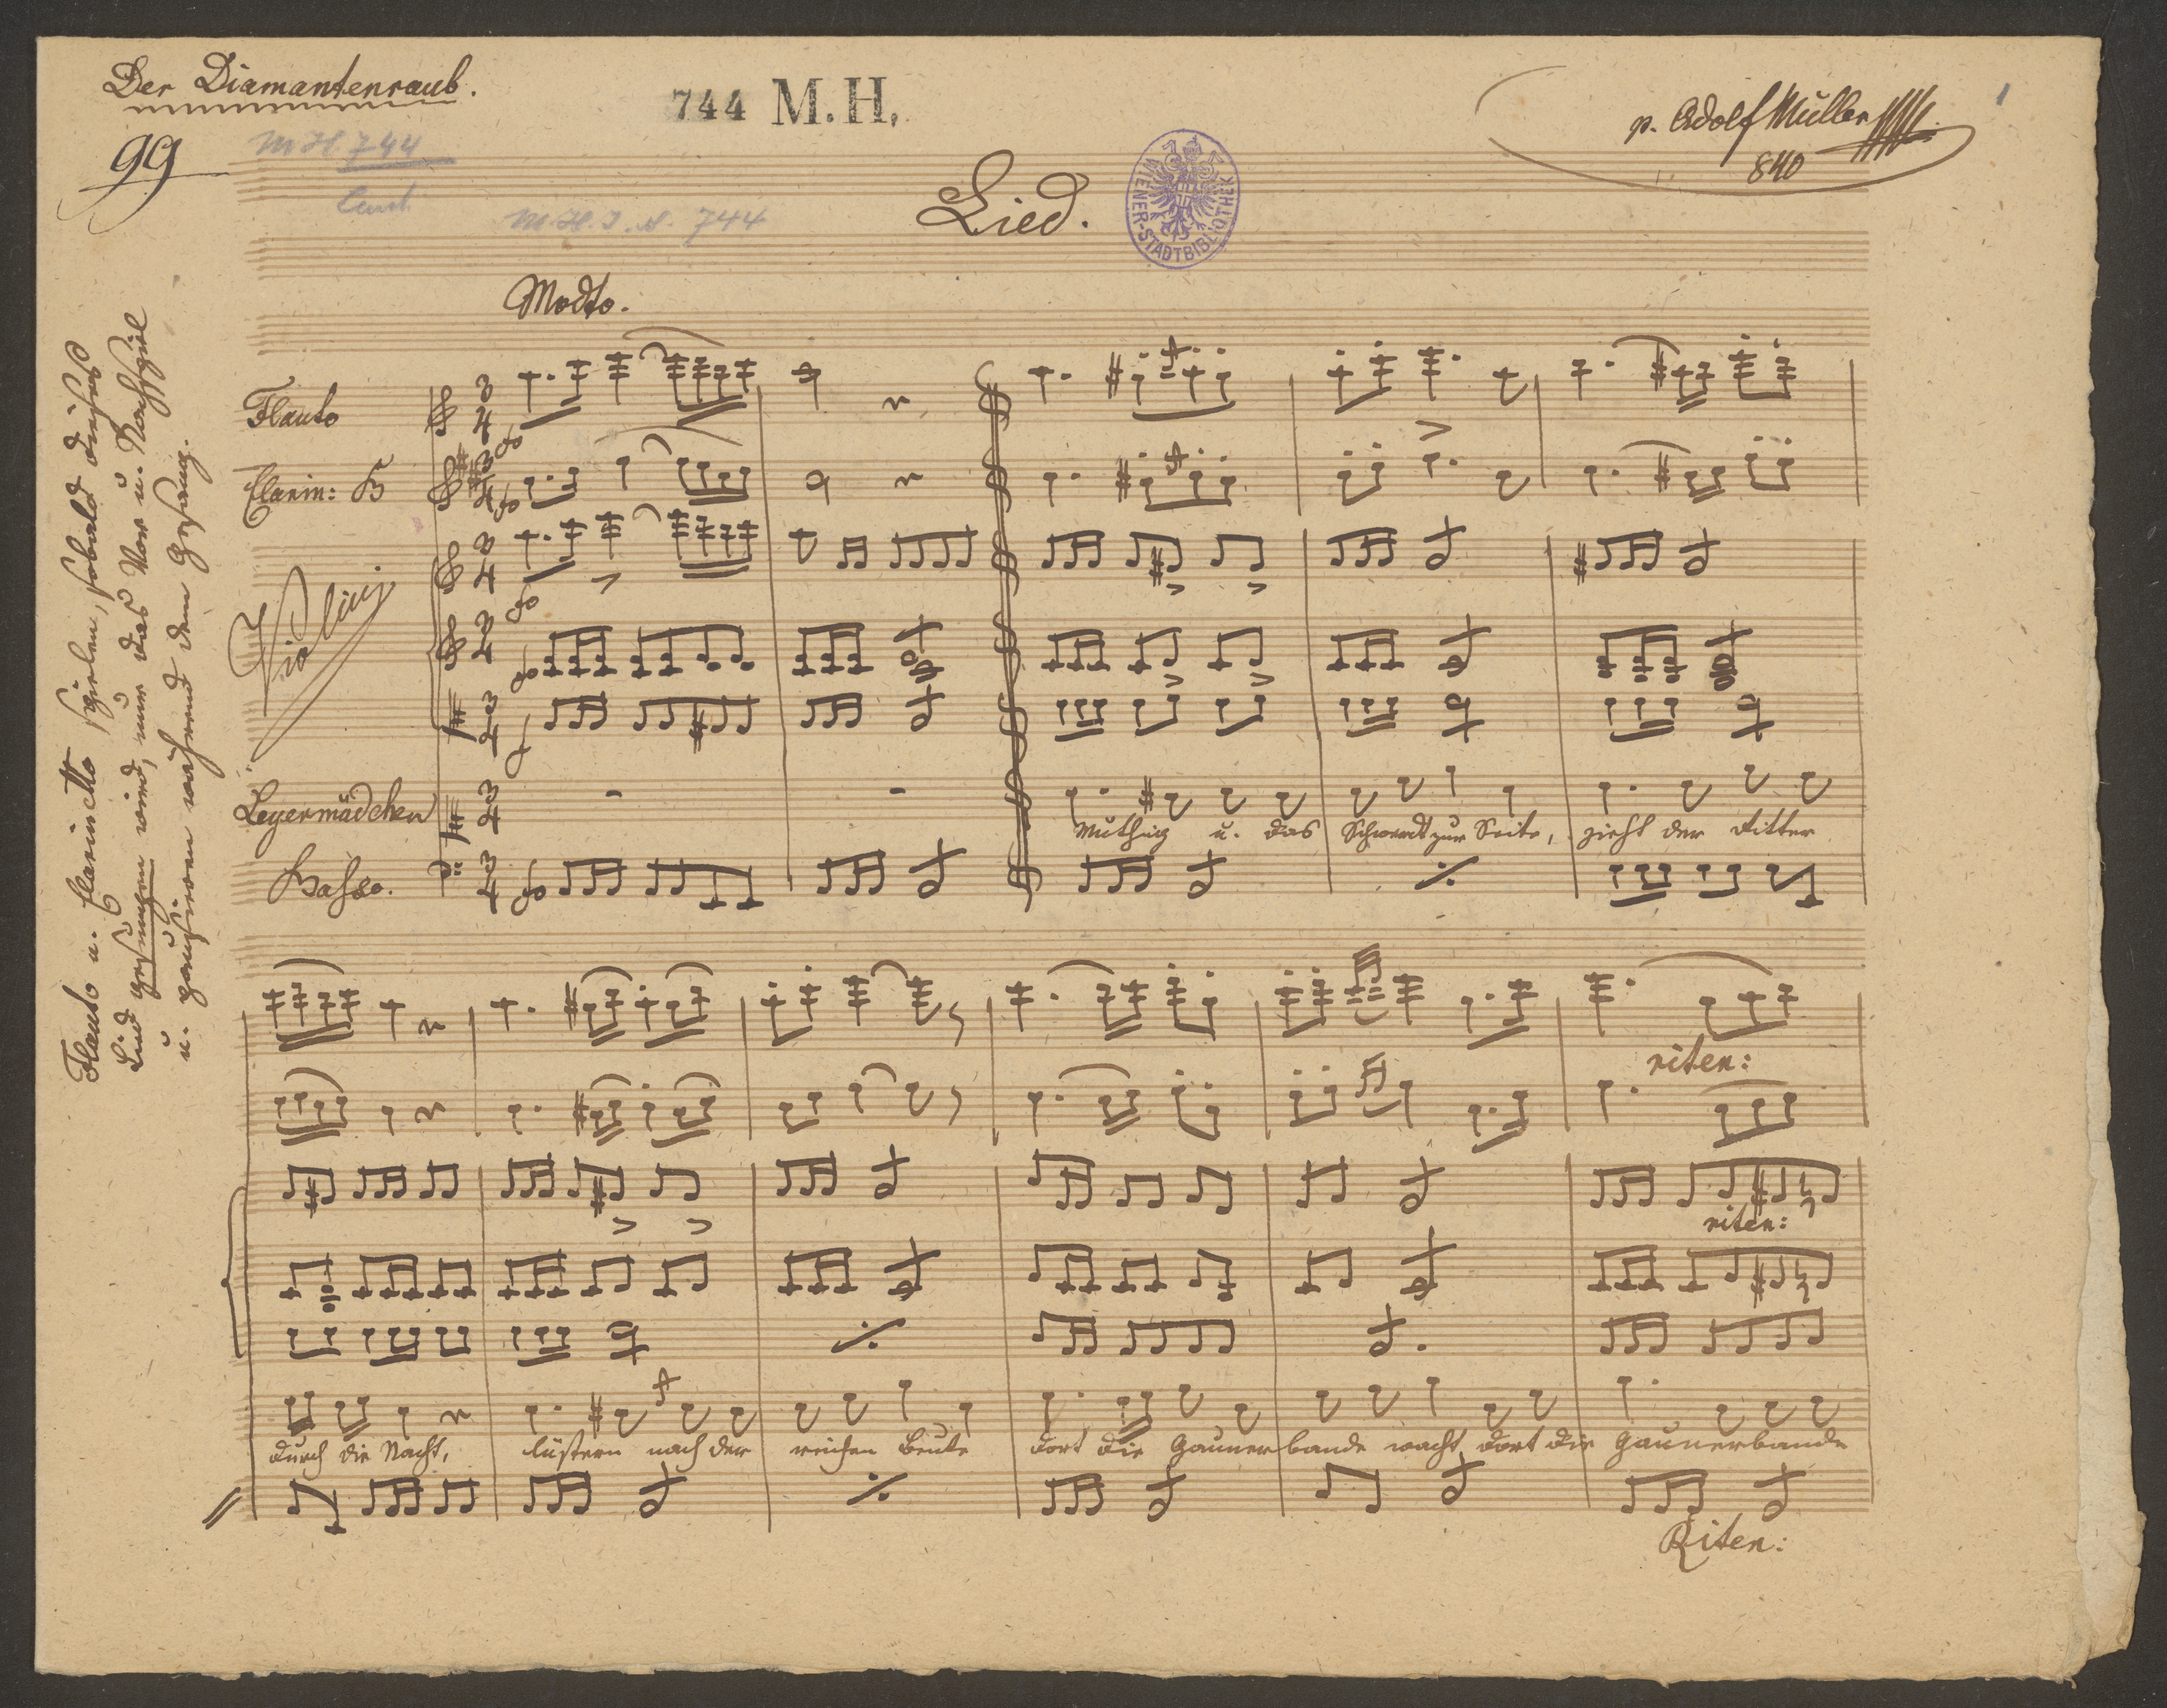 Der Diamantenraub.
744 M. H.
p. Adolf Müller
840
1
99
M H 744
M. H. I. N. 744
Lied.
WIENER-STADTBIBLIOTHEK
Modto.
Flauto
Clarin: B
Violini
Leyermädchen
Basso.
Muthig u. das Schwerdt zur Seite, zieht der Ritter
durch die Nacht, lüstern nach der reichen Beute dort die Gaunerbande wacht dort die Gaunerbande
riten:
riten:
Riten:
Flauto u. Clarinetto spielen, sobald dieses
Lied gesungen wird, nur das Vor u. Nachspiel
u. pausiren während dem Gesang.